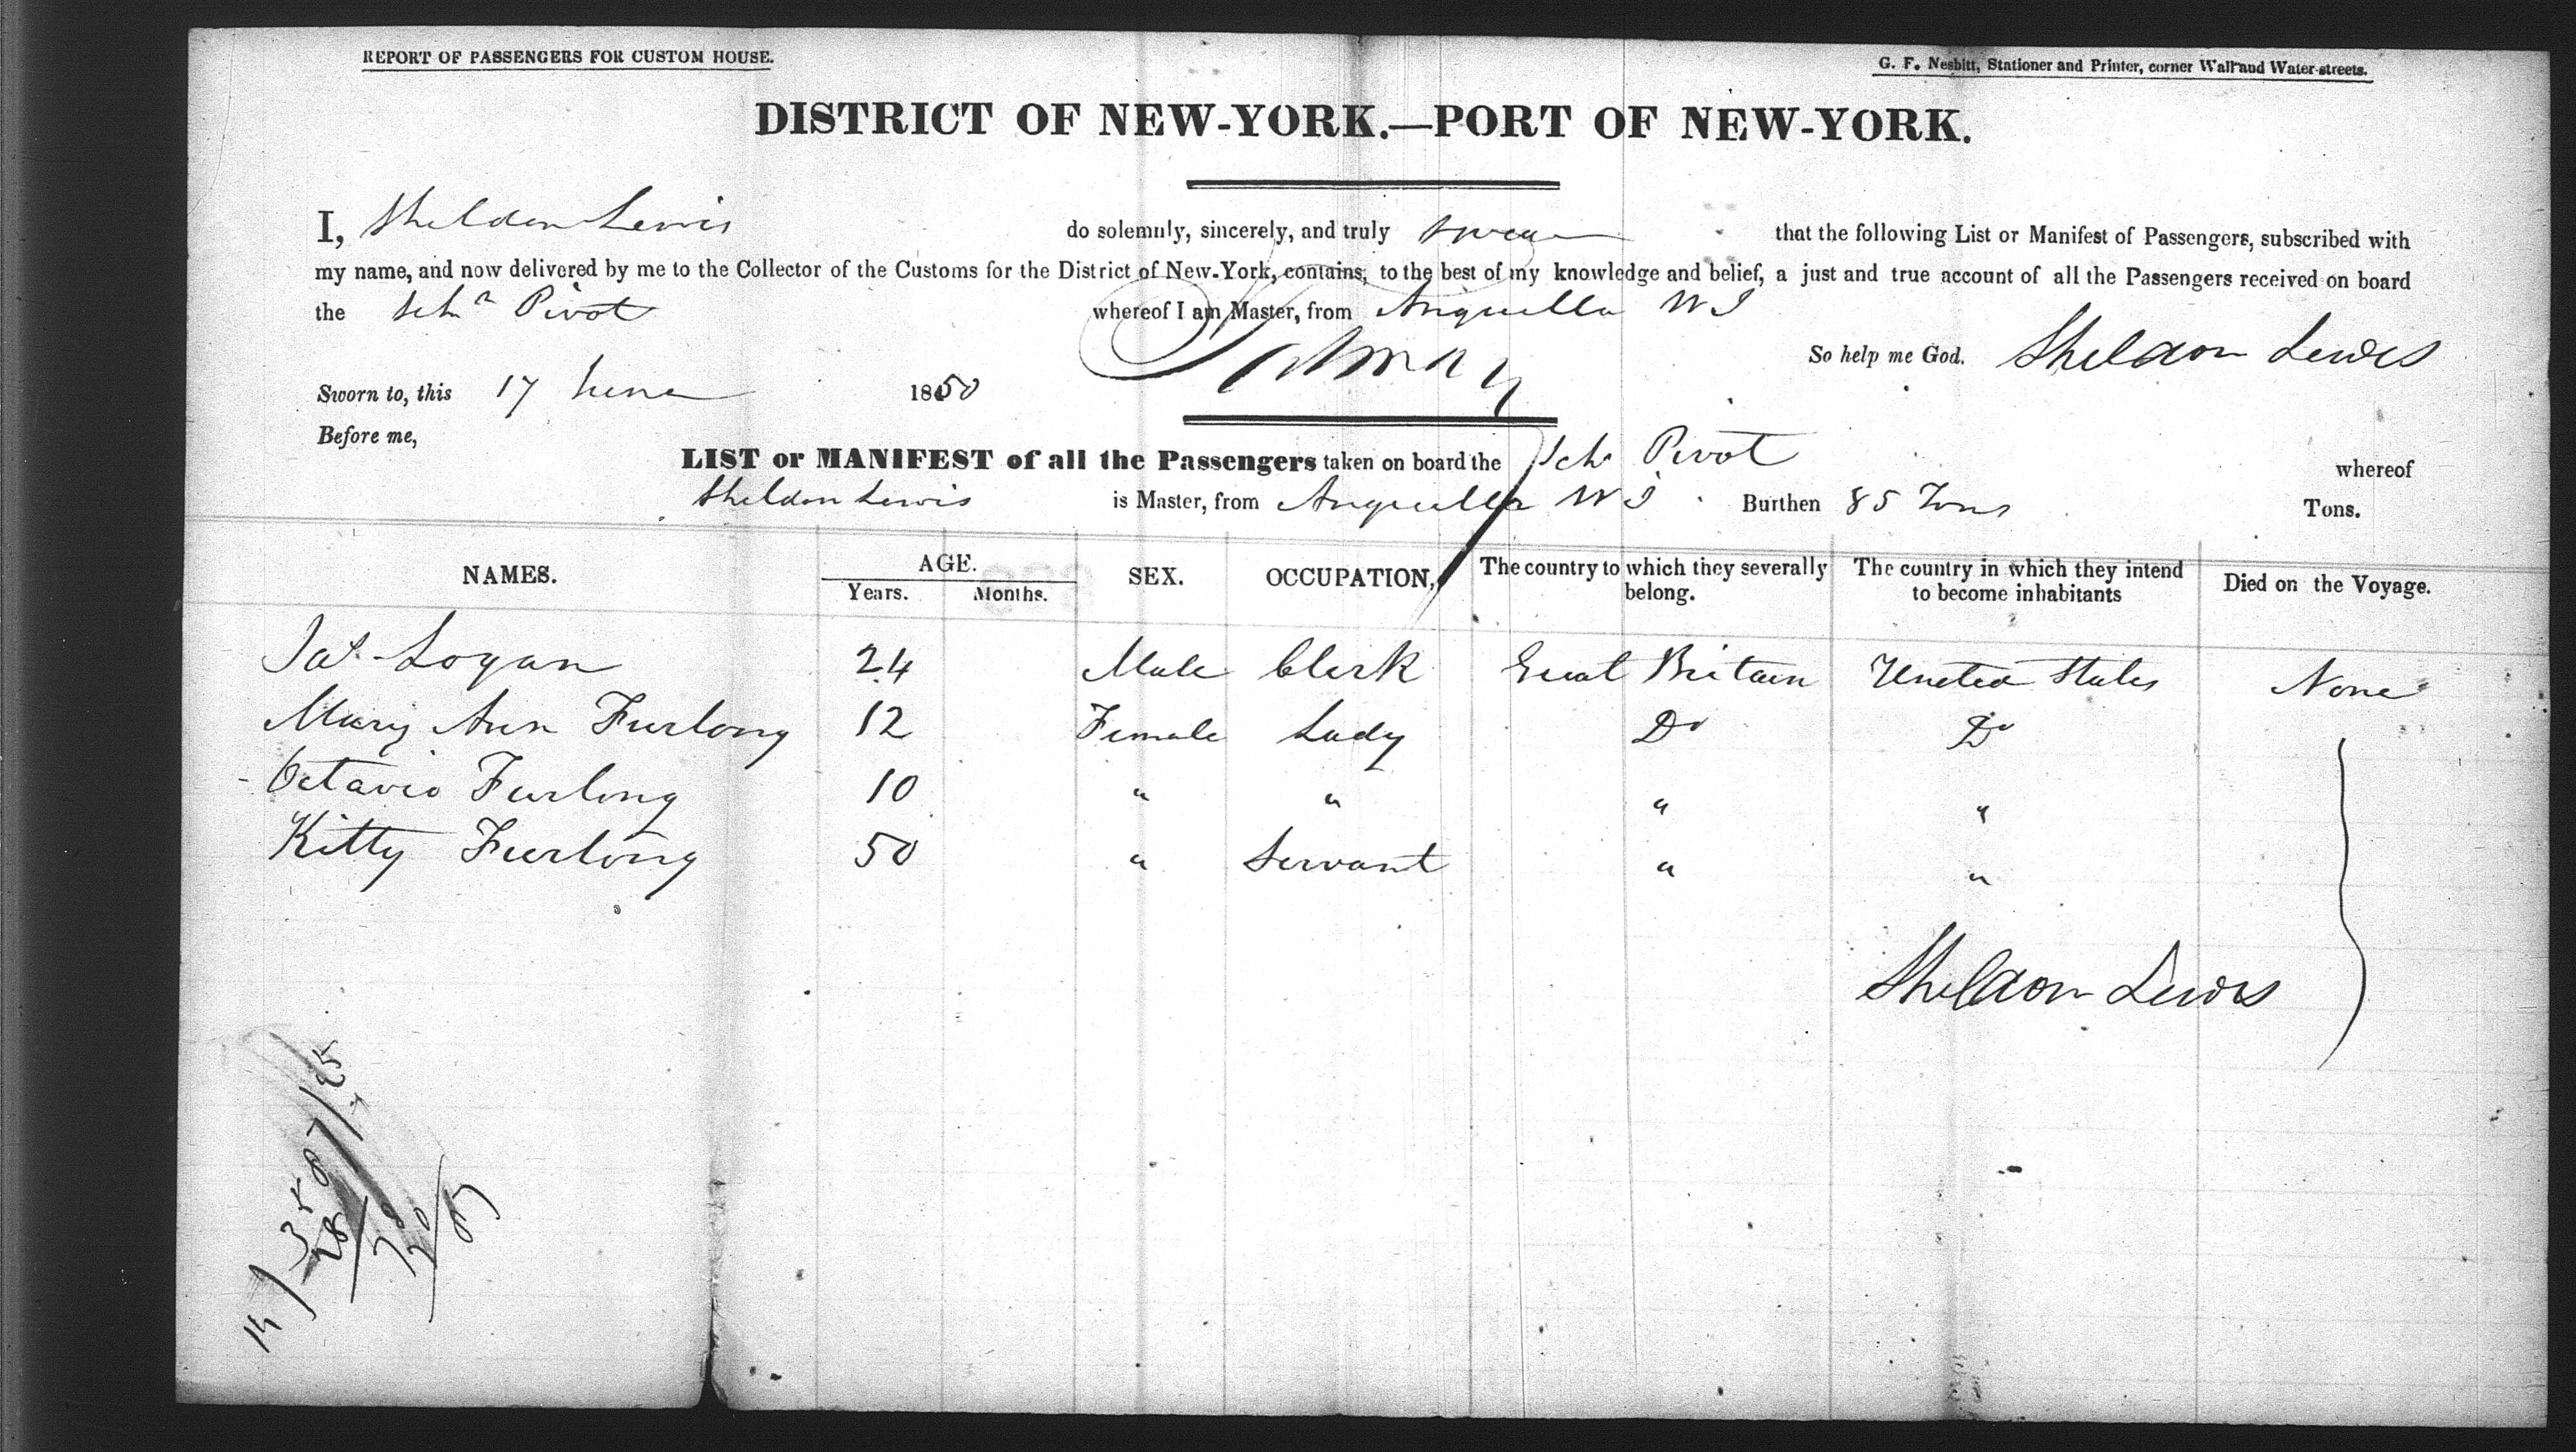 REPORT OF PASSENGERS FOR CUSTOM HOUSE.
G. F. Nesbitt, Stationer and Printer, corner Wall and Water-streets.
DISTRICT OF NEW-YORK.—PORT OF NEW-YORK.
I, Sheldon Lewis do solemnly, sincerely, and truly swear that the following List or Manifest of Passengers, subscribed with
my name, and now delivered by me to the Collector of the Customs for the District of New-York, contains, to the best of my knowledge and belief, a just and true account of all the Passengers received on board
the Schr Pivot whereof I am Master, from Anguilla W I
So help me God. Sheldon Lewis
Sworn to, this 17 June 1850
Before me,
LIST or MANIFEST of all the Passengers taken on board the Schr Pivot whereof
Sheldon Lewis is Master, from Anguilla W I Burthen 85 Tons Tons.
NAMES. AGE. SEX. OCCUPATION, The country to which they severally belong. The country in which they intend to become inhabitants Died on the Voyage.
Years. Months.
Jas. Logan 24 Male Clerk Great Britain United States None
Mary Ann Furlong 12 Female Lady Do Do
Octavio Furlong 10 " " " "
Kitty Furlong 50 " Servant " "
Sheldon Lewis
14 ) 3587 / 25
28
78
70
87